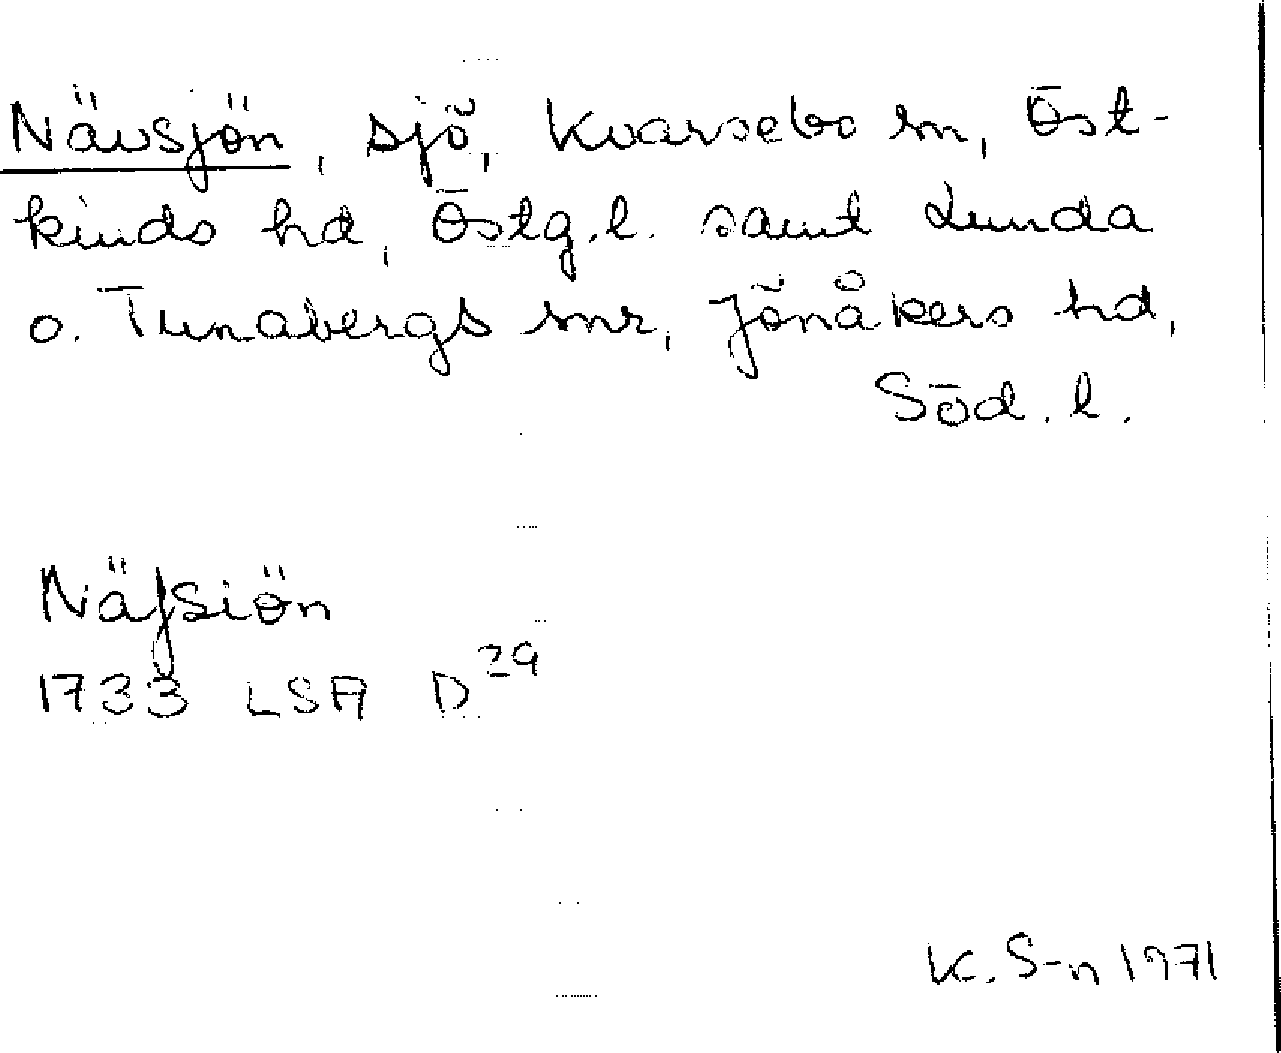 Nävsjön, sjö, Kvarsebo sn, Öst-
kinds hd, Östg.l. samt Lunda
o. Tunabergs snr, Jönåkers hd,
Söd. l.
Näfsiön
1733 LSA D29
K. S-n 1971